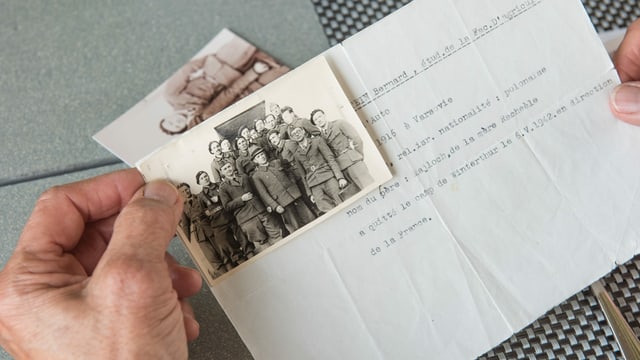 Bernard, étud.de la Fac.D'agricu
Auto
1916 à Varsovie
rel.isr. nationalité : polonaise
nom du père : Hajloch,de la mère Hechehle
a quitté le camp de Winterthur le 5.V.1942.en direction
de la France.